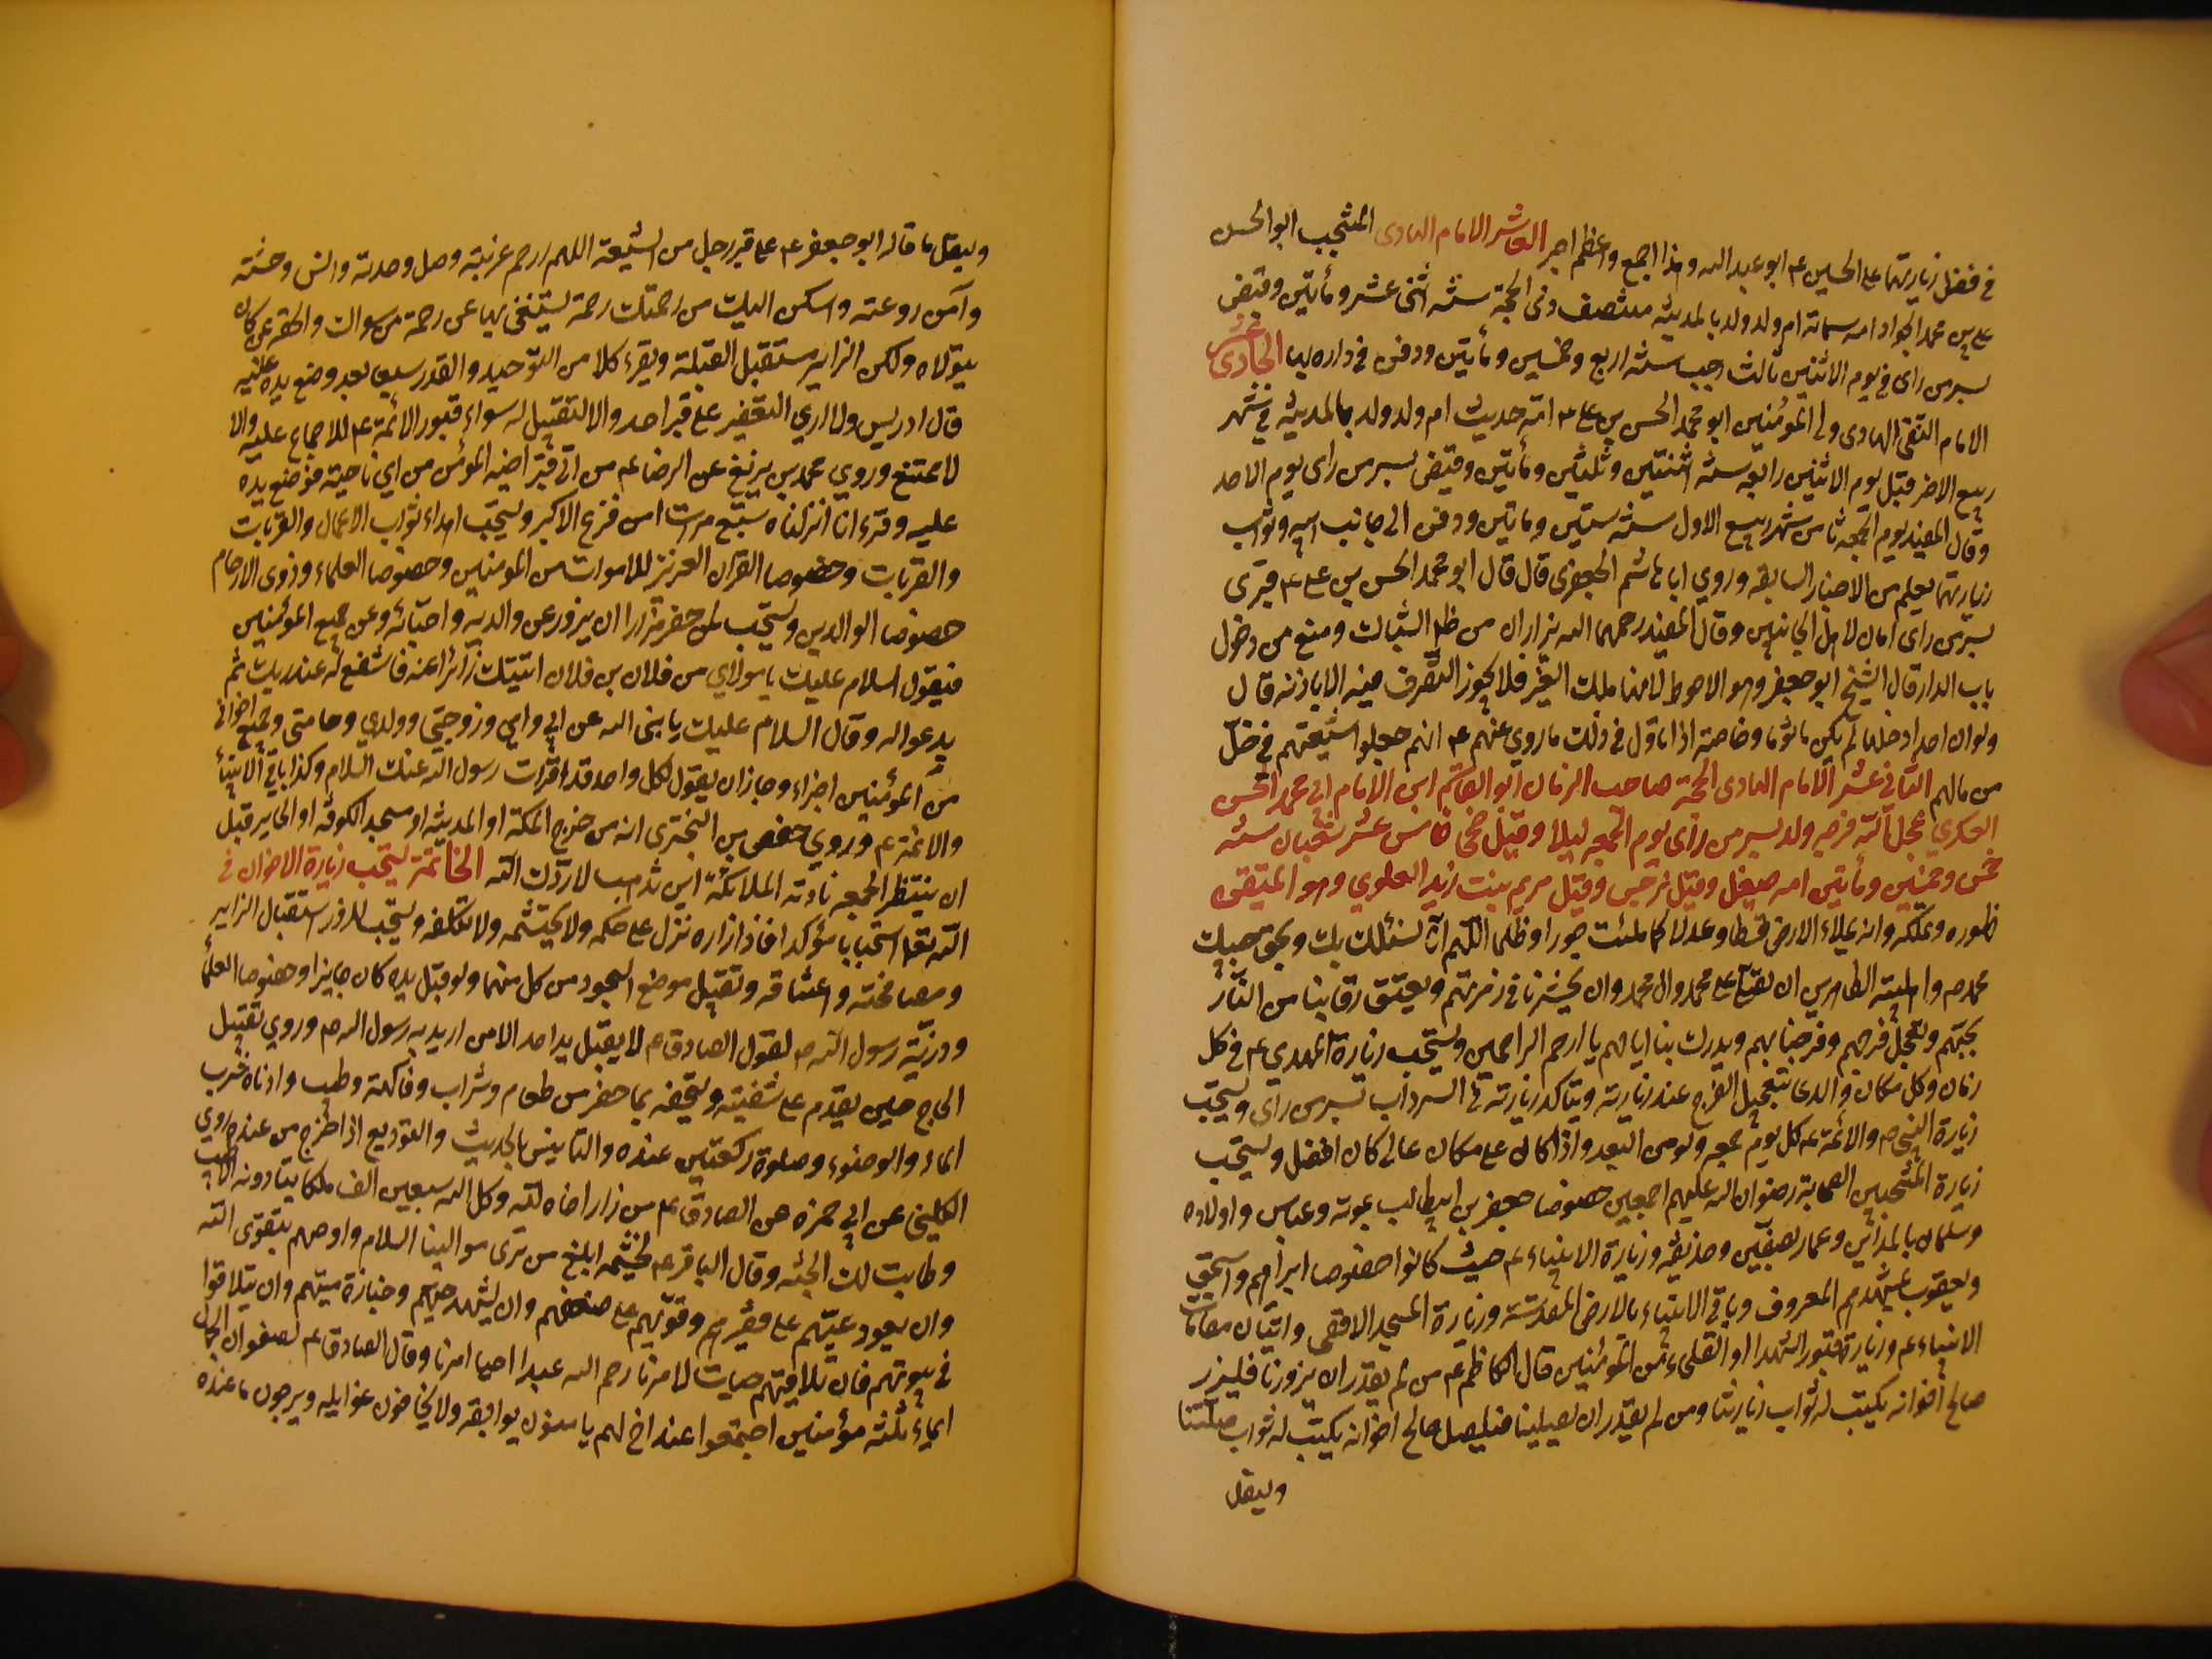 في فضل زيارتهما على الحسين ع ابو عبد الله وهذا اجمع واعظم اجر العاشر الامام الهادى المنتجب ابو الحسن
على بن محمد الجواد امه سمانة ام ولد ولد بالمدينة منتصف ذى الحجة سنة اثنى عشر ومأتين وقبض
بسر من راى في يوم الاثنين ثالث رجب سنة اربع وخمسين ومأتين ودفن في داره بها الحادى عشر
الامام التقى الهادى ولى المؤمنين ابو محمد الحسن بن على ع امه حديث ام ولد ولد بالمدينة في شهر
ربيع الاخر قيل يوم الاثنين رابعه سنة اثنتين وثلثين ومأتين وقبض بسر من راى يوم الاحد
وقال المفيد يوم الجمعة ثامن شهر ربيع الاول سنة ستين ومأتين ودفن الى جانب ابيه وثواب
زيارتهما يعلم من الاخبار السابقه وروى ابا هاشم الجعفرى قال قال ابو محمد الحسن بن على ع قبرى
بسر من راى امان لاهل الجانبين وقال المفيد رحمهما الله يزاران من ظاهر الشباك ومنع من دخول
باب الدار قال الشيخ ابو جعفر وهو الاحوط لانها ملك الغير فلا يجوز التصرف فيه الا باذنه قال
ولو ان احدا دخلها لم يكن ماثوما وخاصة اذا تاول في ذلك ما روي عنهم ع انهم جعلوا شيعتهم في حل
من مالهم الثانى عشر الامام الهادى الحجة صاحب الزمان ابو القاسم ابن الامام ابى محمد الحسن
العسكري عجل الله فرجه ولد بسر من راى يوم الجمعه ليلا وقيل ضحى خامس عشر شعبان سنه
خمس وخمسين ومأتين امه صيقل وقيل نرجس وقيل مريم بنت زيد العلوي وهو المتيقن
ظهوره وتملكه وانه يملاء الارض قسطا وعدلا كما ملئت جورا وظلما اللهم انا نسئلك بك وبحق حبيبك
محمد ص واهل بيته الطاهرين ان تصلى على محمد وال محمد وان تحشرنا في زمرتهم وتعتق رقابنا من النار
بحبهم وتعجل فرجهم وفرجنا بهم ويدرك بنا ايامهم يا ارحم الراحمين ويستحب زيارة المهدي ع في كل
زمان وكل مكان والدعا بتعجيل الفرج عند زيارته ويتاكد زيارته في السرداب بسر من راى ويستحب
زيارة النبى ص والائمة ع كل يوم جمعه ولو من البعد واذا كان على مكان عالى كان افضل ويستحب
زيارة المنتجبين الصحابة رضوان الله عليهم اجمعين خصوصا جعفر بن ابيطالب بموته وعباس واولاده
وسلمان بالمدائن وعمار بصفين وحذيفه وزيارة الانبياء ع حيث كانوا خصوصا ابراهيم واسحق
ويعقوب بمشهدهم المعروف وباقى الانبياء بالارض المقدسة وزيارة المسجد الاقصى واتيان مقامات
الانبياء ع وزيارة قبور الشهدا او الصلحاء من المؤمنين قال الكاظم ع من لم يقدر ان يزورنا فليزر
صالح اخوانه يكتب له ثواب زيارتنا ومن لم يقدر ان يصلينا فليصل صالح اخوانه يكتب له ثواب صلتنا
وليقل
وليقل ما قاله ابو جعفر ع على قبر رجل من الشيعة اللهم ارحم غربته وصل وحدته وانس وحشته
وآمن روعته واسكن اليك من رحمتك رحمة يستغنى بها عن رحمة من سواك والحقه بمن كان
يتولاه وليكن الزاير مستقبل القبلة ويقرء كلا من التوحيد والقدر سبعا بعد وضع يده عليه
قال ادريس ولا اري التعفير على قبر احد ولا التقبيل له سواء قبور الائمة ع للاجماع عليه والا
لامتنع وروي محمد بن بزيع عن الرضا ع من اتى قبر اخيه المؤمن من اي ناحية فوضع يده
عليه وقرء انا انزلناه سبع مرات امن فزع الاكبر ويستحب اهداء ثواب الاعمال والقربات
والقربات وخصوصا القران العزيز للاموات من المؤمنين وخصوصا العلماء وذوى الارحام
خصوصا الوالدين ويستحب لمن حضر مزارا ان يزور عن والديه واحبائه وعن جميع المؤمنين
فيقول السلام عليك يا مولاي من فلان بن فلان اتيتك زائرا عنه فاشفع له عند ربك ثم
يدعو اله وقال السلام عليك يا نبى الله عن ابى وامي وزوجتى وولدي وحامتى وجميع اخوانى
من المؤمنين اجزاء وجاز ان يقول لكل واحد قد اقرات رسول الله عنك السلام وكذا باقى الانبياء
والائمة ع وروي حفص بن البخترى انه من خرج المكه او المدينه او مسجد الكوفه او الحاير قبل
ان ينتظر الجمعه نادته الملائكة اين تذهب لا ردك الله الخاتمة يستحب زيارة الاخوان فى
الله تعا استحبابا مؤكدا فاذا زاره نزل على حكمه ولا يحتشمه ولا تكلفه ويستحب للمزور استقبال الزاير
ومصافحته واعتناقه وتقبيل موضع السجود من كل منهما ولو قبل يده كان جايزا وخصوصا العلماء
وذرية رسول الله ص لقول الصادق ع لا يقبل يد احد الا من اريد به رسول الله ص وروي تقبيل
الحاج حين يقدم على شفتيه ويتحفه بما حضر من طعام وشراب وفاكهة وطيب وادناه شرب
الماء والوضوء وصلوة ركعتين عنده والتانيس بالحديث والتوديع اذا خرج من عنده روي
الكلينى عن ابى حمزه عن الصادق ع من زار اخاه لله وكل الله سبعين الف ملكا ينادونه الا طبت
وطابت لك الجنه وقال الباقر ع لخيثمه ابلغ من ترى موالينا السلام واوصهم بتقوى الله
وان يعود غنيهم على فقيرهم وقويهم على ضعيفهم وان يشهد حيهم وجنازة ميتهم وان يتلاقوا
في بيوتهم فان تلاقيهم حياة لامرنا رحم الله عبدا احيا امرنا وقال الصادق ع لصفوان الجمال
ايما ثلثه مؤمنين اجتمعوا عند اخ لهم يامنون بوايقه ولا يخافون غوايله ويرجون ما عنده